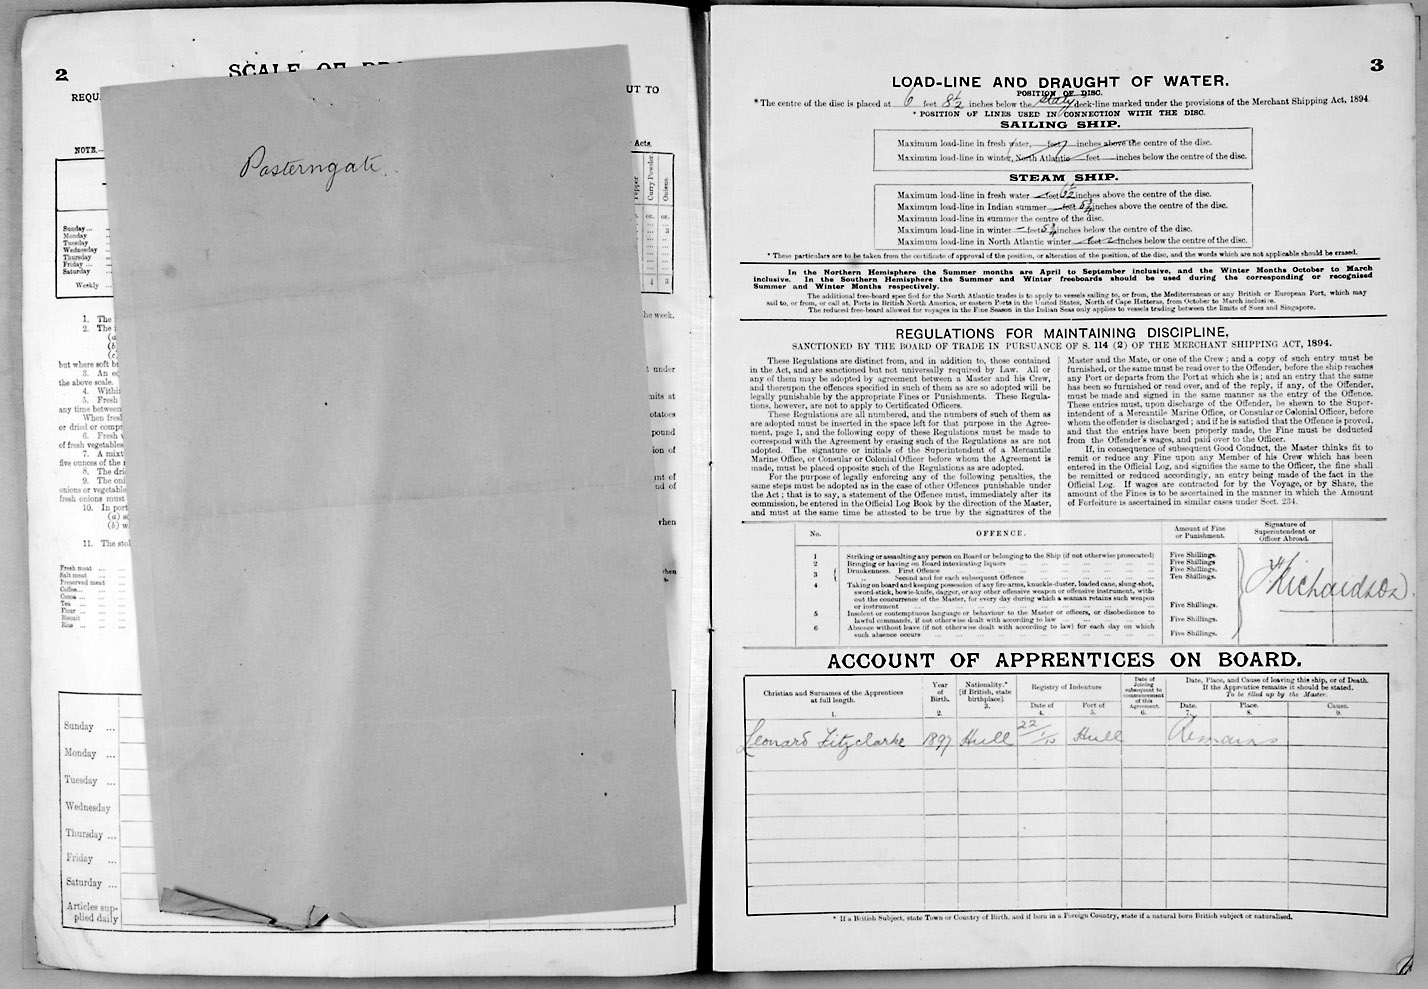 2
SCALE OF
REQU
UT TO
NOTE.—
Acts.
Curry Powder
Onions.
oz.
oz.
Sunday...
Monday
Tuesday
Wednesday
Thursday
Friday ...
Saturday
Weekly ...
Posterngate.
1. The
2. The
(a
(b)
(c)
but where soft
3. An
the above scale.
4. Within
5. Fresh
any time between
When fresh
or dried or
6. Fresh
of fresh vegetables
7. A
five ounces of the
8. The
9. The
onions or vegetable
fresh onions must
10. In port
(a)
(b)
11. The
he week.
under
at
otatoes
pound
ion of
nt of
nd of
when
Fresh meat ...
Salt meat ...
Preserved meat ...
Coffee...
Cocoa ...
Tea
Flour ...
Biscuit
Rice ...
Sunday ...
Monday ...
Tuesday ...
Wednesday
Thursday ...
Friday ...
Saturday ...
Articles sup-
plied daily
3
LOAD-LINE AND DRAUGHT OF WATER.
POSITION OF DISC.
* The centre of the disc is placed at 6 feet 8½ inches below the deck-line marked under the provisions of the Merchant Shipping Act, 1894.
* POSITION OF LINES USED IN CONNECTION WITH THE DISC.
SAILING SHIP.
Maximum load-line in fresh water, feet inches above the centre of the disc.
Maximum load-line in winter, North Atlantic feet inches below the centre of the disc.
STEAM SHIP.
Maximum load-line in fresh water — feet 6½ inches above the centre of the disc.
Maximum load-line in Indian summer — feet 5¾ inches above the centre of the disc.
Maximum load-line in summer the centre of the disc.
Maximum load-line in winter — feet 5¾ inches below the centre of the disc.
Maximum load-line in North Atlantic winter feet inches below the centre of the disc.
* These particulars are to be taken from the certificate of approval of the position, or alteration of the position, of the disc, and the words which are not applicable should be erased.
In the Northern Hemisphere the Summer months are April to September inclusive, and the Winter Months October to March
inclusive. In the Southern Hemisphere the Summer and Winter freeboards should be used during the corresponding or recognised
Summer and Winter Months respectively.
The additional free-board specified for the North Atlantic trades is to apply to vessels sailing to, or from, the Mediterranean or any British or European Port, which may
sail to, or from, or call at, Ports in British North America, or eastern Ports in the United States, North of Cape Hatteras, from October to March inclusive.
The reduced free-board allowed for voyages in the Fine Season in the Indian Seas only applies to vessels trading between the limits of Suez and Singapore.
REGULATIONS FOR MAINTAINING DISCIPLINE,
SANCTIONED BY THE BOARD OF TRADE IN PURSUANCE OF S. 114 (2) OF THE MERCHANT SHIPPING ACT, 1894.
These Regulations are distinct from, and in addition to, those contained
in the Act, and are sanctioned but not universally required by Law. All or
any of them may be adopted by agreement between a Master and his Crew,
and thereupon the offences specified in such of them as are so adopted will be
legally punishable by the appropriate Fines or Punishments. These Regula-
tions, however, are not to apply to Certificated Officers.
These Regulations are all numbered, and the numbers of such of them as
are adopted must be inserted in the space left for that purpose in the Agree-
ment, page 1, and the following copy of these Regulations must be made to
correspond with the Agreement by erasing such of the Regulations as are not
adopted. The signature or initials of the Superintendent of a Mercantile
Marine Office, or Consular or Colonial Officer before whom the Agreement is
made, must be placed opposite such of the Regulations as are adopted.
For the purpose of legally enforcing any of the following penalties, the
same steps must be adopted as in the case of other Offences punishable under
the Act; that is to say, a statement of the Offence must, immediately after its
commission, be entered in the Official Log Book by the direction of the Master,
and must at the same time be attested to be true by the signatures of the
Master and the Mate, or one of the Crew; and a copy of such entry must be
furnished, or the same must be read over to the Offender, before the ship reaches
any Port or departs from the Port at which she is; and an entry that the same
has been so furnished or read over, and of the reply, if any, of the Offender,
must be made and signed in the same manner as the entry of the Offence.
These entries must, upon discharge of the Offender, be shewn to the Super-
intendent of a Mercantile Marine Office, or Consular or Colonial Officer, before
whom the offender is discharged; and if he is satisfied that the Offence is proved,
and that the entries have been properly made, the Fine must be deducted
from the Offender's wages, and paid over to the Officer.
If, in consequence of subsequent Good Conduct, the Master thinks fit to
remit or reduce any Fine upon any Member of his Crew which has been
entered in the Official Log, and signifies the same to the Officer, the fine shall
be remitted or reduced accordingly, an entry being made of the fact in the
Official Log. If wages are contracted for by the Voyage, or by Share, the
amount of the Fines is to be ascertained in the manner in which the Amount
of Forfeiture is ascertained in similar cases under Sect. 234.
No. OFFENCE. Amount of Fine or Punishment. Signature of Superintendent or Officer Abroad.
1 Striking or assaulting any person on Board or belonging to the Ship (if not otherwise prosecuted) Five Shillings.
2 Bringing or having on Board intoxicating liquors Five Shillings
3 Drunkenness. First Offence Five Shillings.
„ Second and for each subsequent Offence Ten Shillings.
4 Taking on board and keeping possession of any fire-arms, knuckle-duster, loaded cane, slung-shot,
sword-stick, bowie-knife, dagger, or any other offensive weapon or offensive instrument, with-
out the concurrence of the Master, for every day during which a seaman retains such weapon
or instrument Five Shillings.
5 Insolent or contemptuous language or behaviour to the Master or officers, or disobedience to
lawful commands, if not otherwise dealt with according to law Five Shillings.
6 Absence without leave (if not otherwise dealt with according to law) for each day on which
such absence occurs Five Shillings.
Richardson.
ACCOUNT OF APPRENTICES ON BOARD.
Christian and Surnames of the Apprentices at full length. 1.
Year of Birth. 2.
Nationality.* [if British, state birthplace]. 3.
Registry of Indenture
Date of 4.
Port of 5.
Date of Joining subsequent to commencement of this Agreement. 6.
Date, Place, and Cause of leaving this ship, or of Death.
If the Apprentice remains it should be stated.
To be filled up by the Master.
Date. 7.
Place. 8.
Cause. 9.
Leonard Fitzclarke 1897 Hull 22/1/13 Hull Remains
* If a British Subject, state Town or Country of Birth, and if born in a Foreign Country, state if a natural born British subject or naturalised.